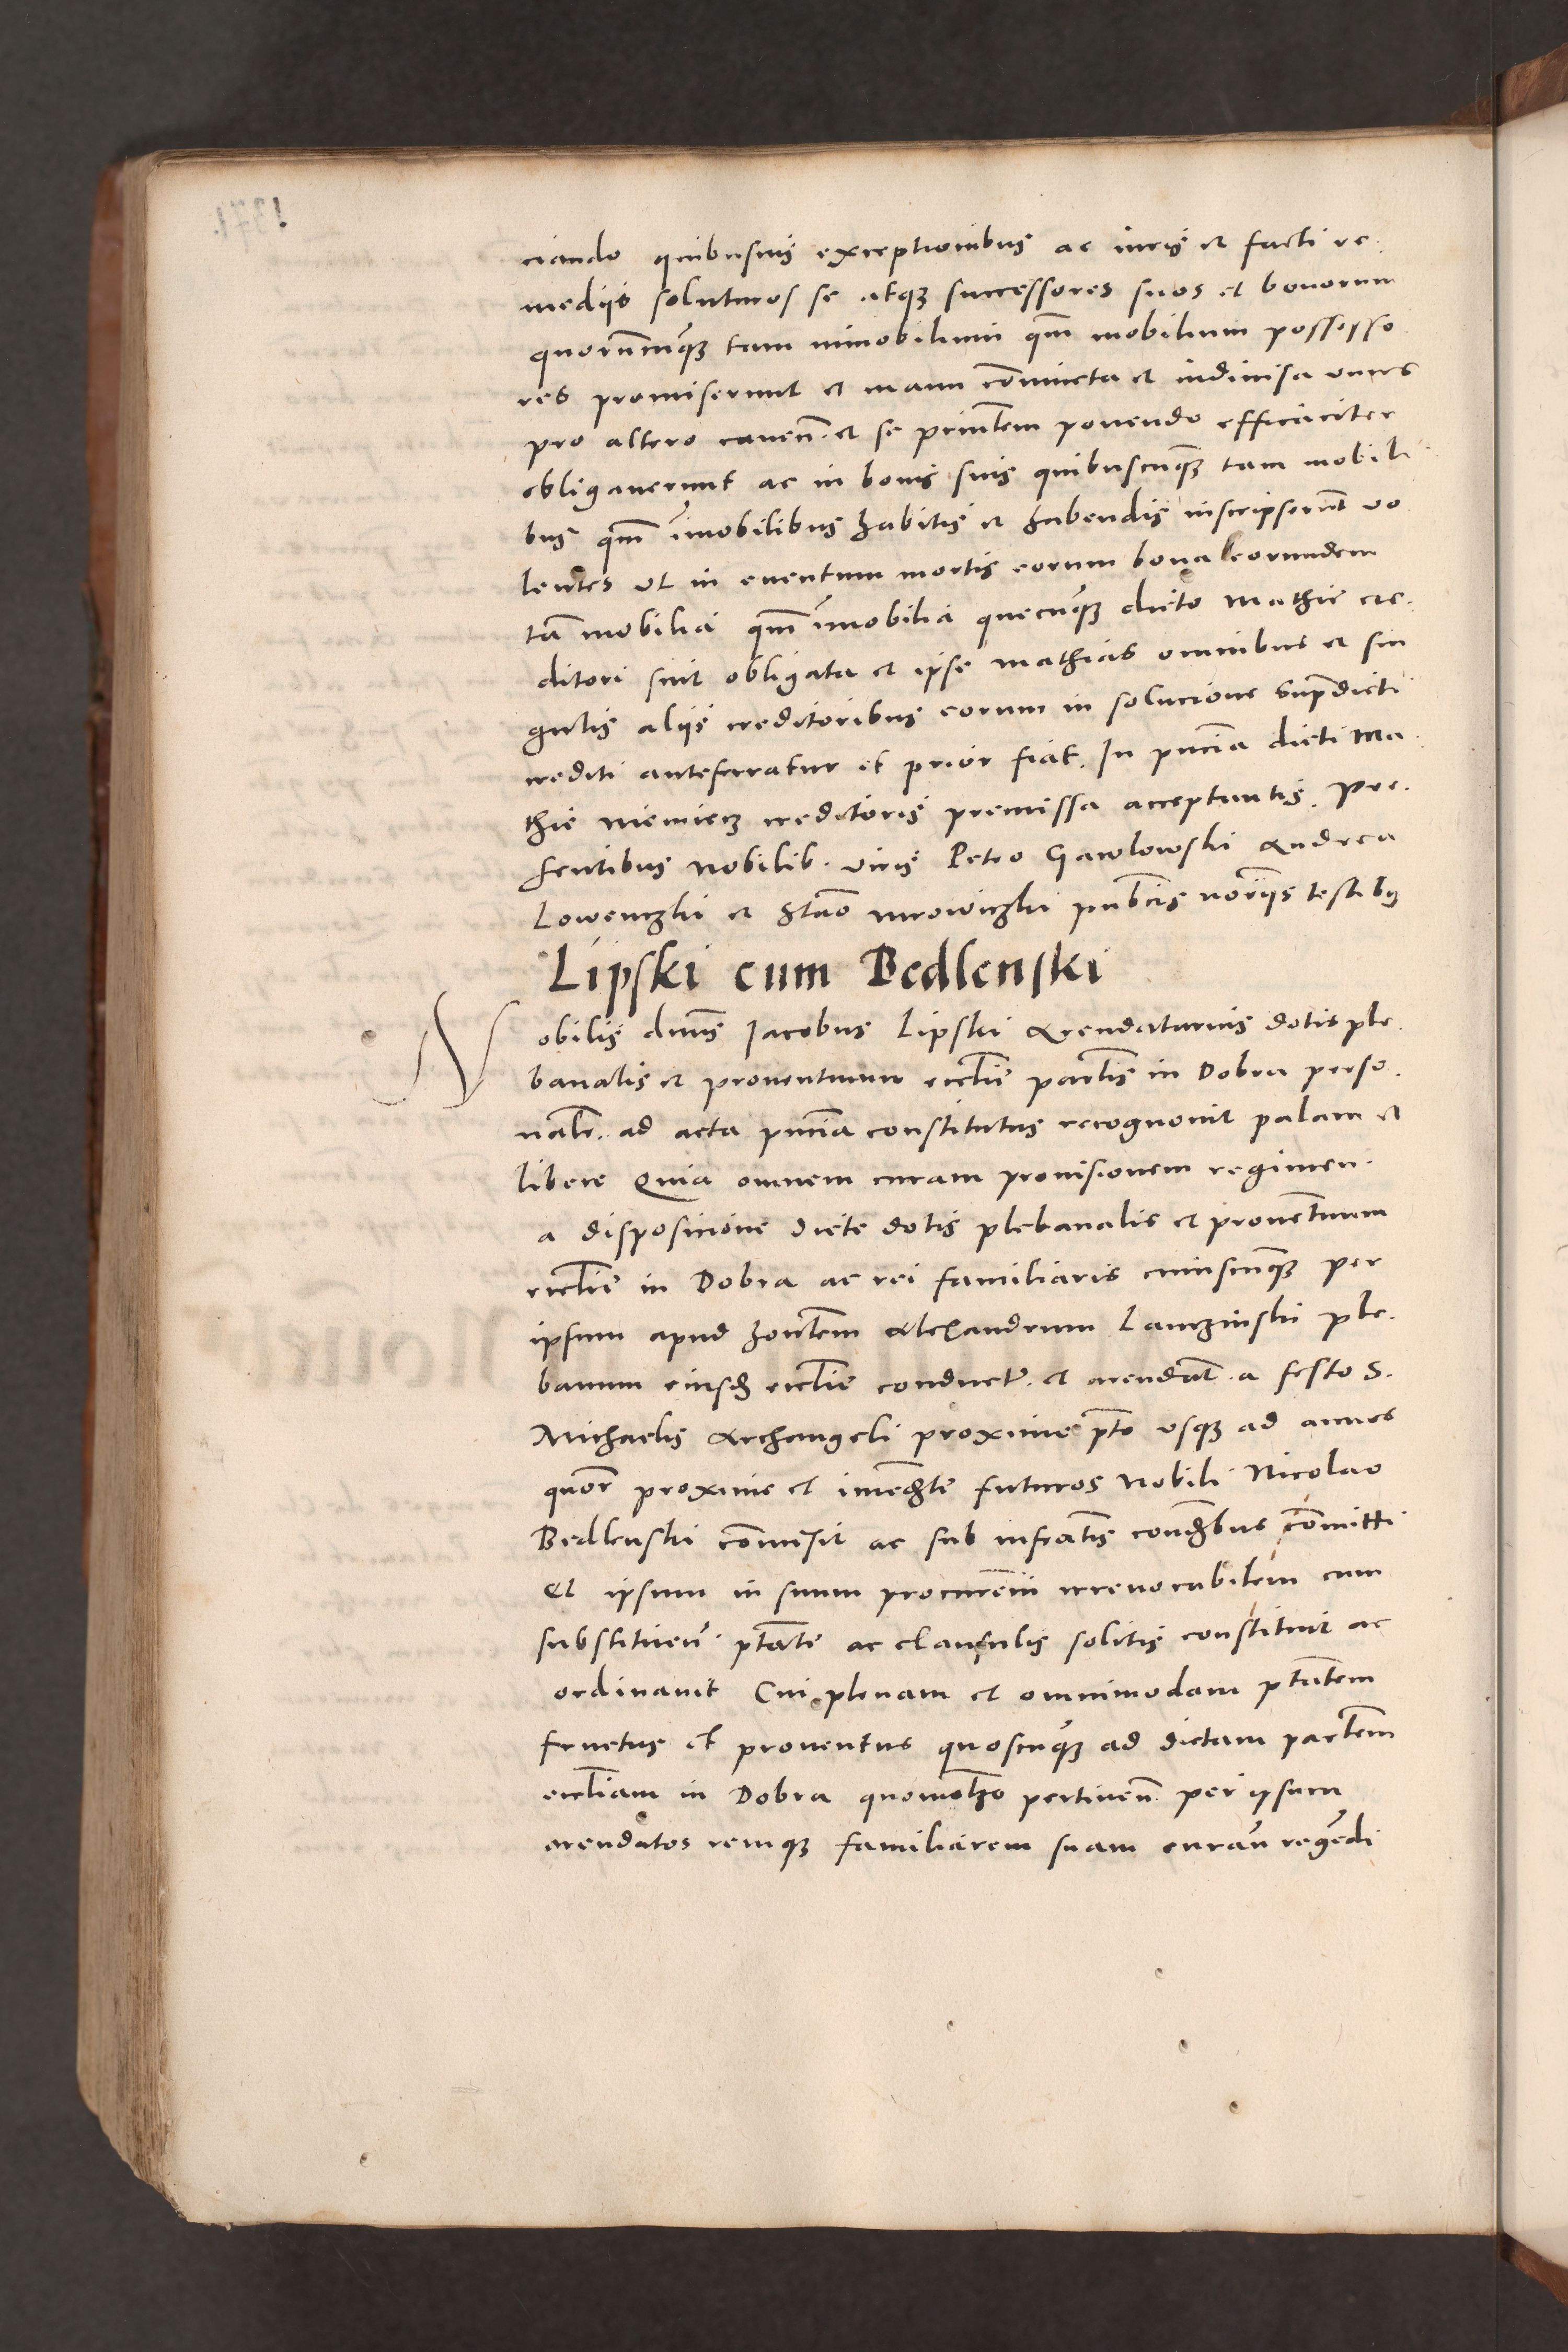 ciando quibusuis exceptionibus ac iuris et facti re
mediis soluturos se atq3 successores suos et bonorum
quorūcūq3 tam immobilium qm̄ mobilium possesso
res promiserunt et manu cōniuncta et indiuisa unus
pro altero cauen̄. et se prīntem ponendo efficaciter
obligauerunt ac in bonis suis quibuscūq3 tam mobili
bus qm̄ īmobilibus habitis et habendis inscripserūt vo
lentes vt in euentum mortis eorum bona eorumdem
tā mobilia qm̄ īmobilia quecūq3 dicto Mathie cre
ditori sint obligata et ipse Mathias omnibus et sin
gulis aliis creditoribus eorum in solucione sup̄dicti
crediti anteferatur et prior fiat. In pn̄cia dicti Ma
thie creditoris premissa acceptantis. Pre
sentibus Nobilib. viris Petro Gawlowski Andrea
Lowenczki et Stāo Mrowiczki publ̄cis nor̄iis testib9
Lipski cum Bedlenski
Nobilis dn̄us Jacobus Lipski Arendatarius dotis ple
banalis et prouentuum eccl̄ie par̄lis in Dobra perso
nal̄r. ad acta pn̄cia constitutus recognouit palam et
libere Quia omnem curam prouisionem regimen
a disposicione dicte dotis plebanalis et prouentuum
eccl̄ie in Dobra ac rei familiaris cuiuscūq3 per
ipsum apud hon̄lem Alexandrum Lanczinski ple
banum eiusd̄ eccl̄ie conduct̄. et arendat̄. a festo S.
Michaelis Archangeli proxime pt̄o usq3 ad annos
quor̄ proxime et imed̄te futuros Nobili Nicolao
Bedlenski cōmisit ac sub infrāctis cond̄bus cōmitti
Et ipsum in suum procur̄em irreuocabilem cum
substituen̄. pt̄ate ac clausulis solitis constituit ac
ordinauit Cui plenam et omnimodam pt̄atem
fructus et prouentus quoscūq3 ad dictam par̄lem
eccl̄iam in Dobra quomol̄3o pertinen̄. per ipsum
arendatos remq3 familiarem suam curan̄ regēdi